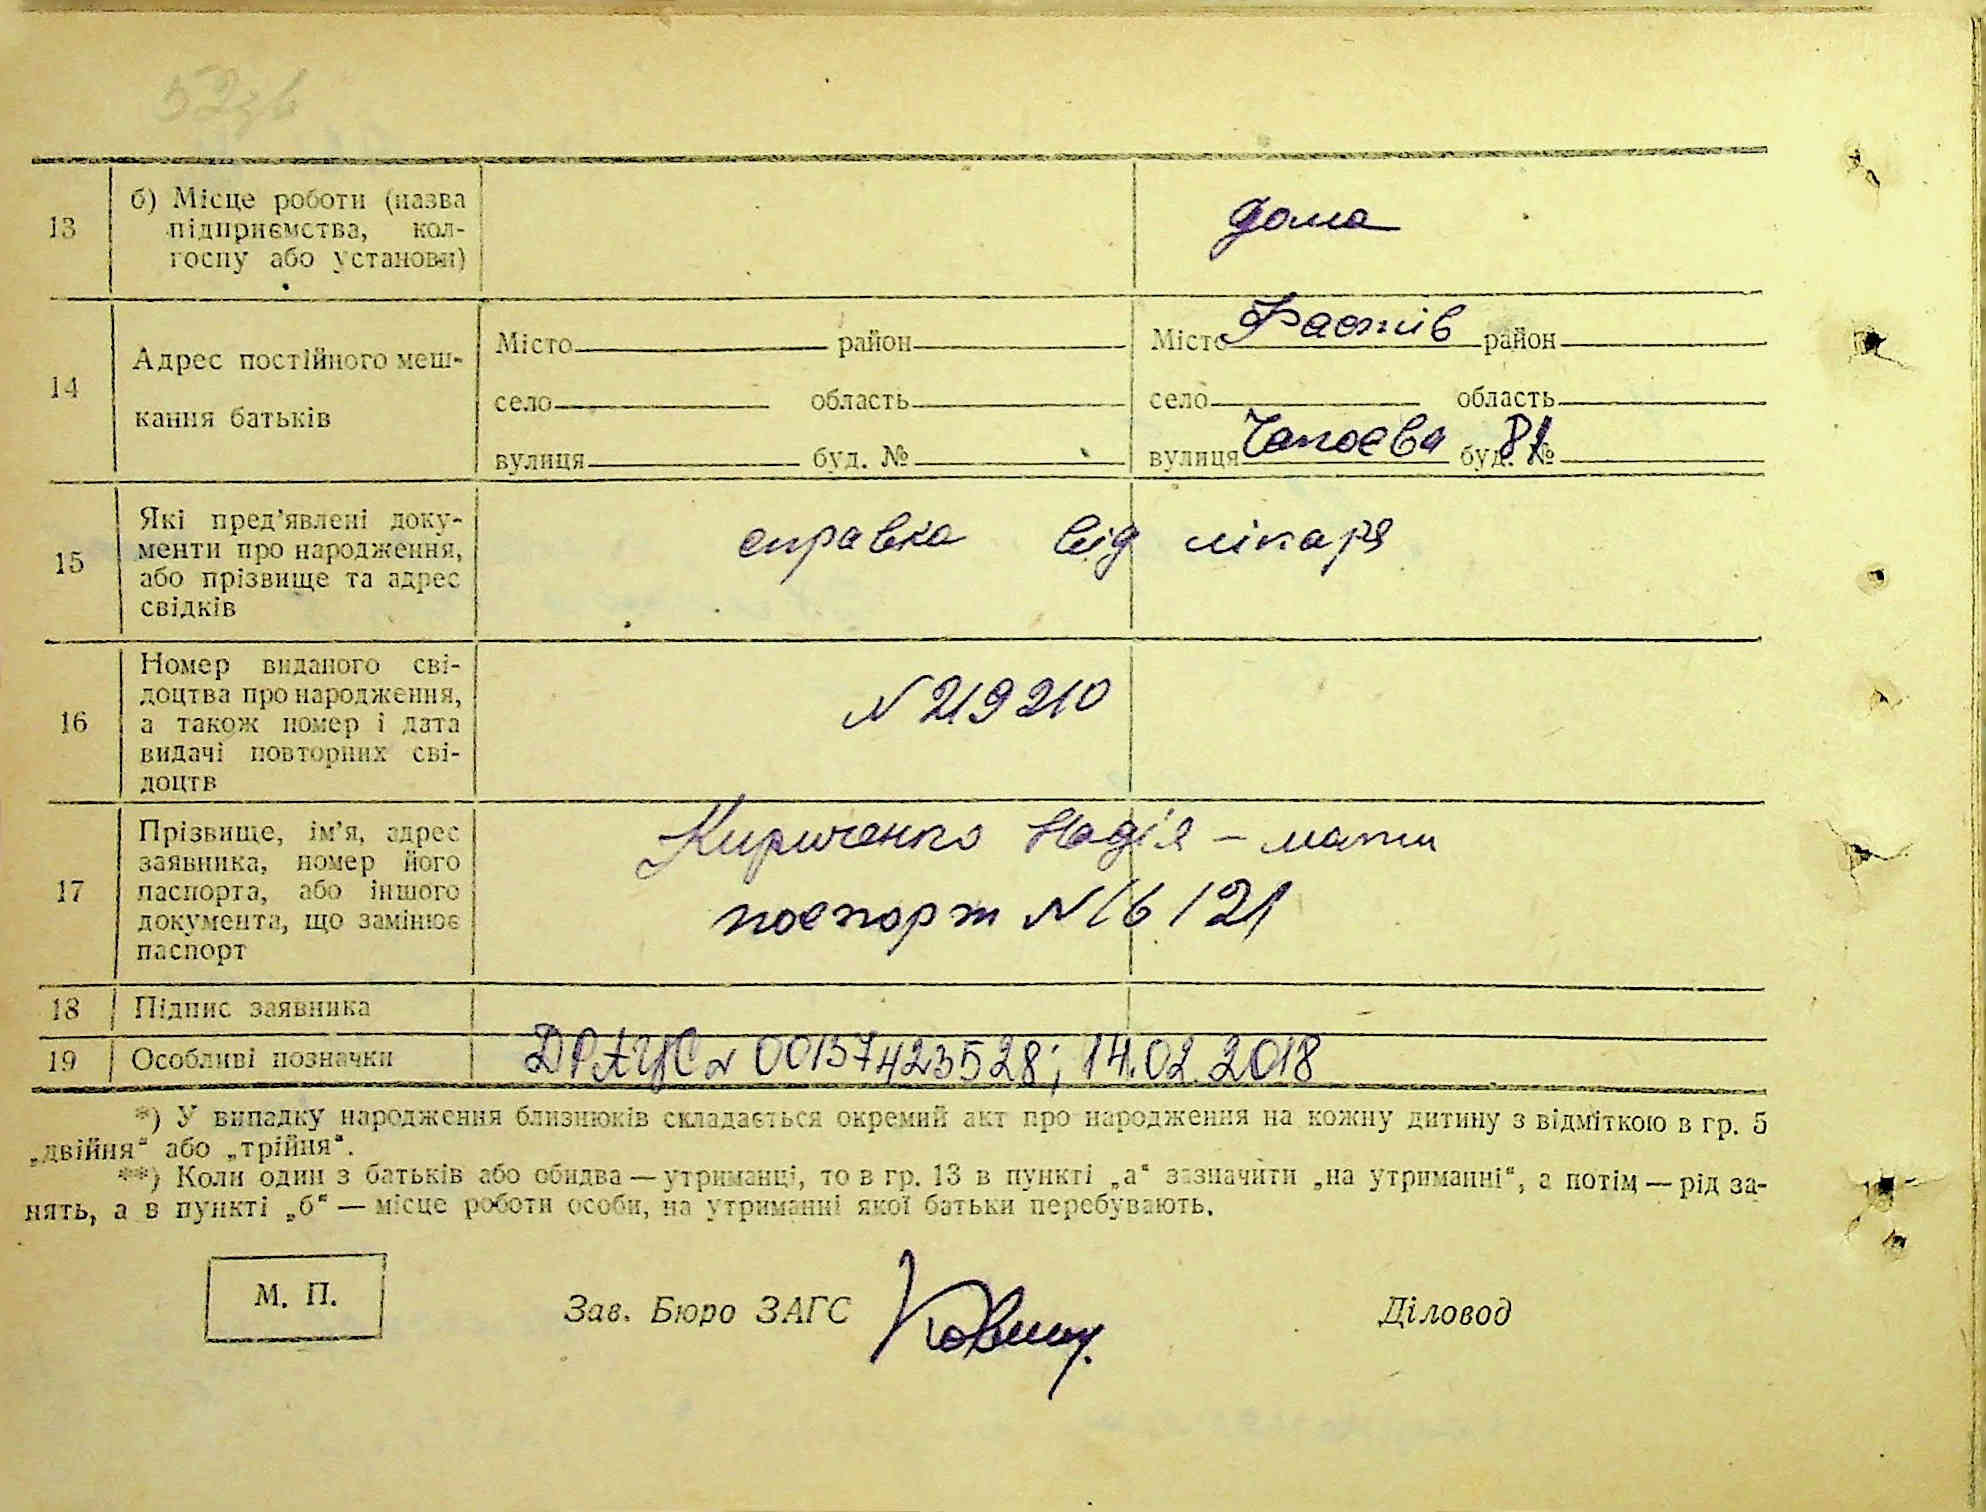 52зв
13 б) Місце роботи (назва
підприємства, кол-
госпу або установи)
дома
14 Адрес постійного меш-
кання батьків
Місто район Місто Фастів район
село область село область
вулиця буд. № вулиця Чапаєва буд. № 81
15 Які пред'явлені доку-
менти про народження,
або прізвище та адрес
свідків
справка від лікаря
16 Номер виданого сві-
доцтва про народження,
а також номер і дата
видачі повторних сві-
доцтв
N 219210
17 Прізвище, ім'я, адрес
заявника, номер його
паспорта, або іншого
документа, що замінює
паспорт
Кириченко Надія – мати
паспорт N 16121
18 Підпис заявника
19 Особливі позначки ДРАЦС N 00137423528; 14.02.2018
*) У випадку народження близнюків складається окремий акт про народження на кожну дитину з відміткою в гр. 5
„двійня“ або „трійня“.
**) Коли один з батьків або обидва — утриманці, то в гр. 13 в пункті „а“ зазначити „на утриманні“, а потім — рід за-
нять, а в пункті „б“ — місце роботи особи, на утриманні якої батьки перебувають.
М. П. Зав. Бюро ЗАГС Діловод